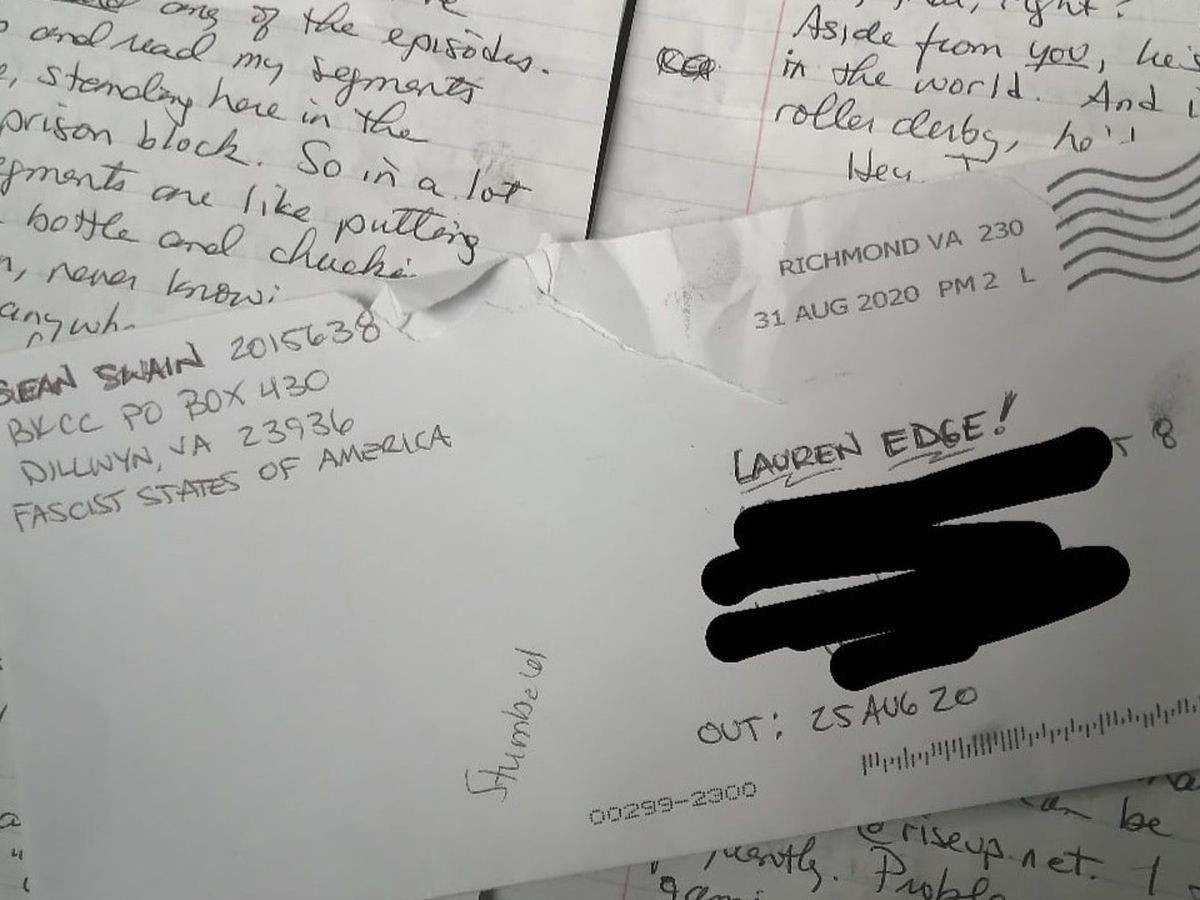 ong of the episodes.
and read my segments
, standing here in the
prison block. So in a lot
egments are like putting
bottle and chucki
n, never knowi
anywh
right?
Aside from you, he's
in the world. And i
roller derby, he'll
Hey. T
RICHMOND VA 230
31 AUG 2020 PM 2 L
SEAN SWAIN 2015638
BKCC PO BOX 430
DILLWYN, VA 23936
FASCIST STATES OF AMERICA
LAUREN EDGE!
T 8
OUT: 25 AUG 20
00299-2300
can be
@riseup.net. I
uently. Proble